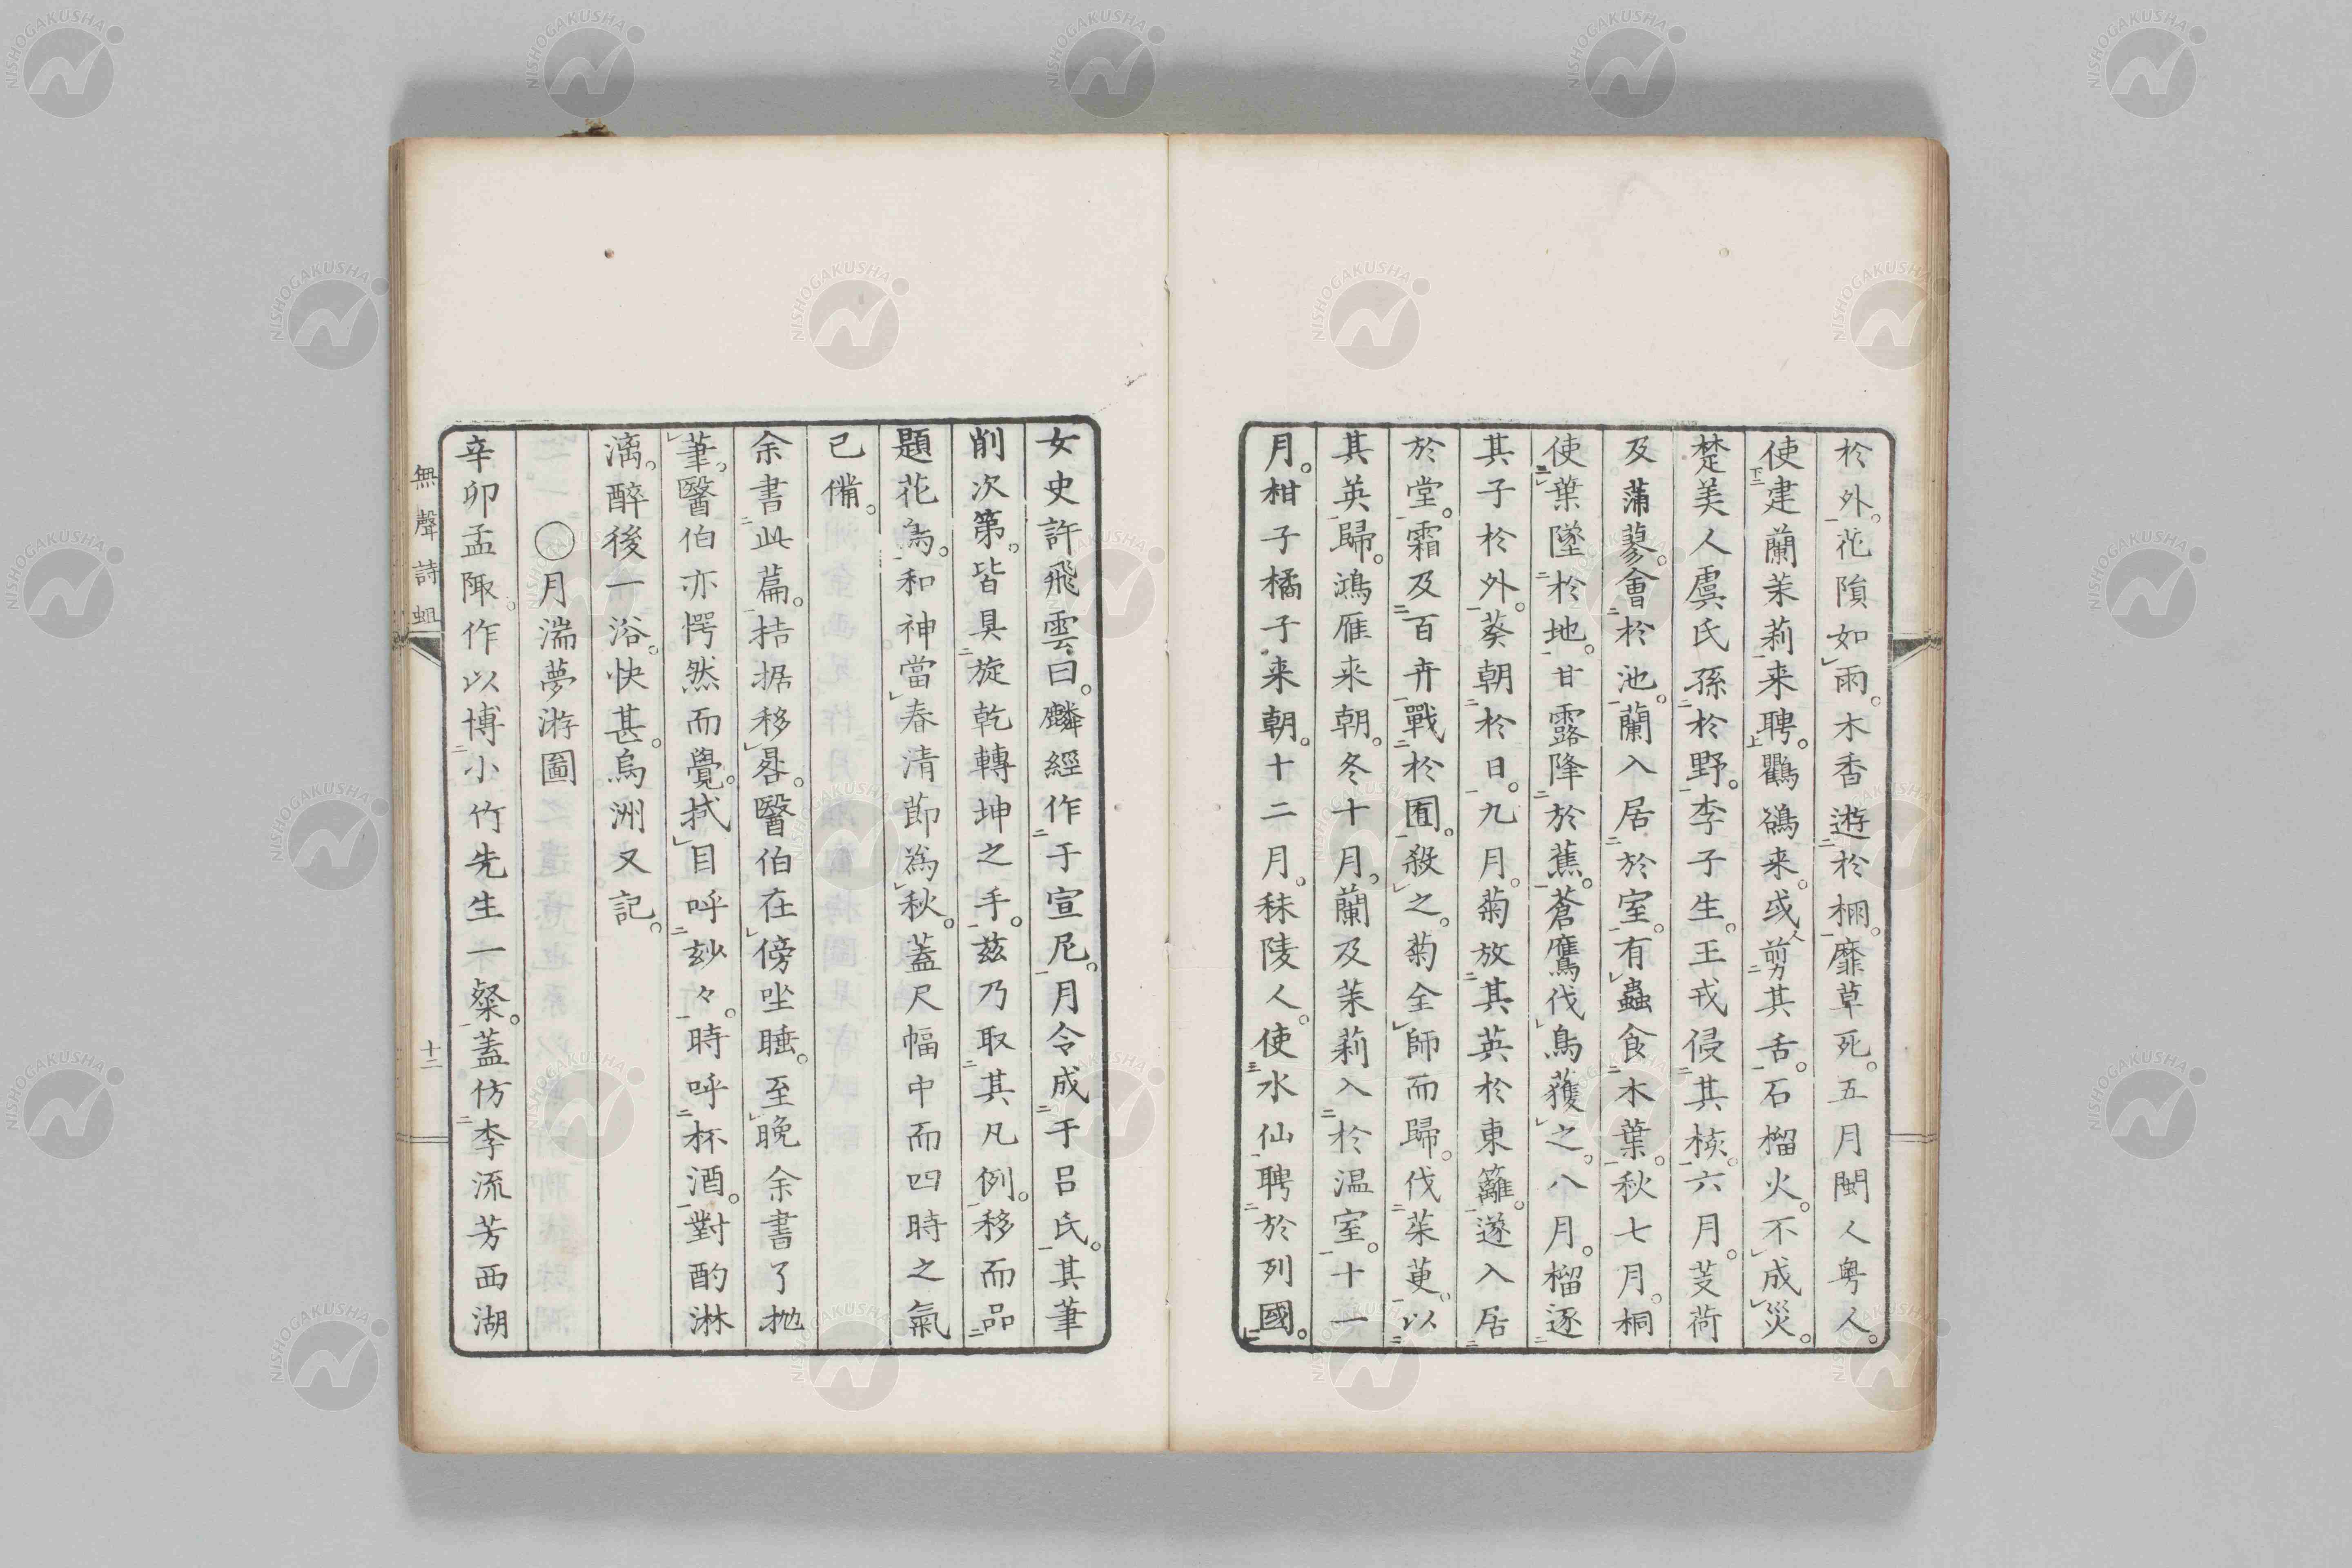 於外。花隕如雨。木香遊於棚。靡草死。五月閩人粤人。
使建蘭茉莉来聘。鸜鵒来。或剪其舌。石榴火。不成災。
楚美人虞氏孫於野。李子生。王戎侵其核。六月芰荷
及蒲蓼會於池。蘭入居於室。有蟲食木葉。秋七月。桐
使葉墜於地。甘露降於蕉。蒼鷹伐鳥獲之。八月。榴逐
其子於外。葵朝於日。九月。菊放其英於東籬。遂入居
於堂。霜及百卉戰於囿。殺之。菊全師而歸。伐茱萸。以
其英歸。鴻雁来朝。冬十月。蘭及茉莉入於温室。十一
月。柑子橘子来朝。十二月。秣陵人。使水仙聘於列國。
女史許飛雲曰。麟經作于宣尼。月令成于呂氏。其筆
削次第。皆具旋乾轉坤之手。兹乃取其凡例。移而品
題花鳥。和神當春清節為秋。蓋尺幅中而四時之氣
已備。
余書此篇。拮据移晷。醫伯在傍坐睡。至晚余書了抛
筆。醫伯亦愕然而覺。拭目呼玅々。時呼杯酒。對酌淋
漓。醉後一浴。快甚。烏洲又記。
○月湍夢游圖
辛卯孟陬。作以博小竹先生一粲。蓋仿李流芳西湖
無聲詩蛆
十二
NISHOGAKUSHA